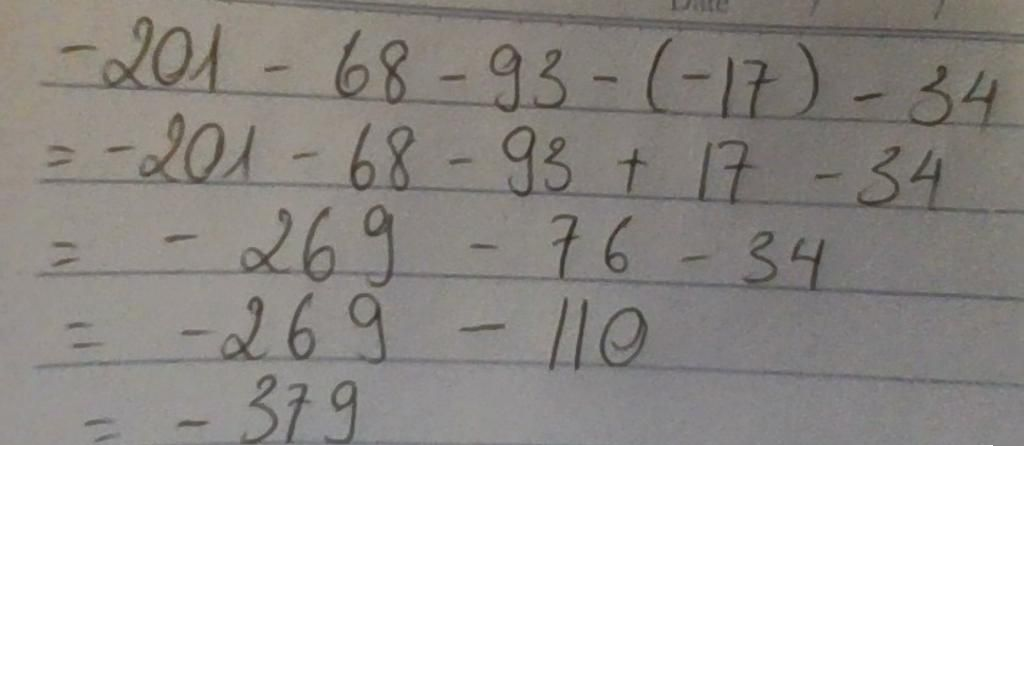 Date / /
-201 - 68 - 93 - (-17) - 34
= -201 - 68 - 93 + 17 - 34
= - 269 - 76 - 34
= -269 - 110
= - 379